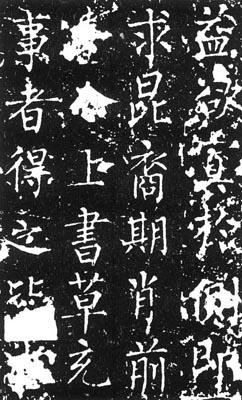 益欲寘於側即
求昆裔期肖前
上書草充
事者得之